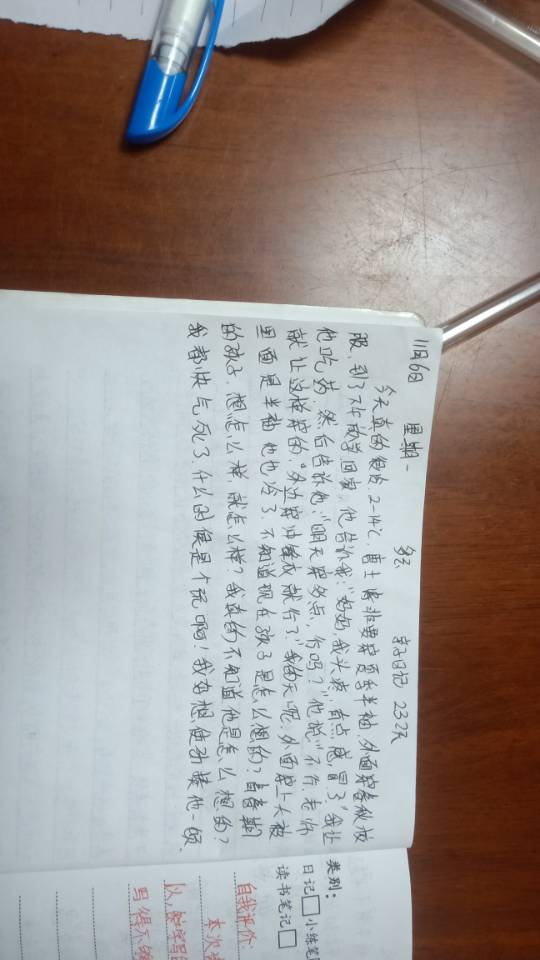 11月6日 星期一 多云 亲子日记 232天
今天真的很冷,2-14℃,曹士 非要穿夏季半袖,外面穿春秋校
服,到了下午放学回家,他告诉我:"妈妈,我头疼,有点感冒了"我让
他吃药,然后告诉他:"明天穿多点,行吗?"他说:"不行,老师
就让这样穿的。"外边穿冲锋衣就行了"我的天呢,外面穿个大袄
里面是半袖他也冷了,不知道现在孩子是怎么想的?青春期
的孩子,想怎么样,就怎么样?我真的不知道他是怎么想的?
我都快气死了,什么时候是个完啊!我好想使劲揍他一顿。
类别:
日记□ 小练笔
读书笔记□
自我评价:
本次
以,
写得不够